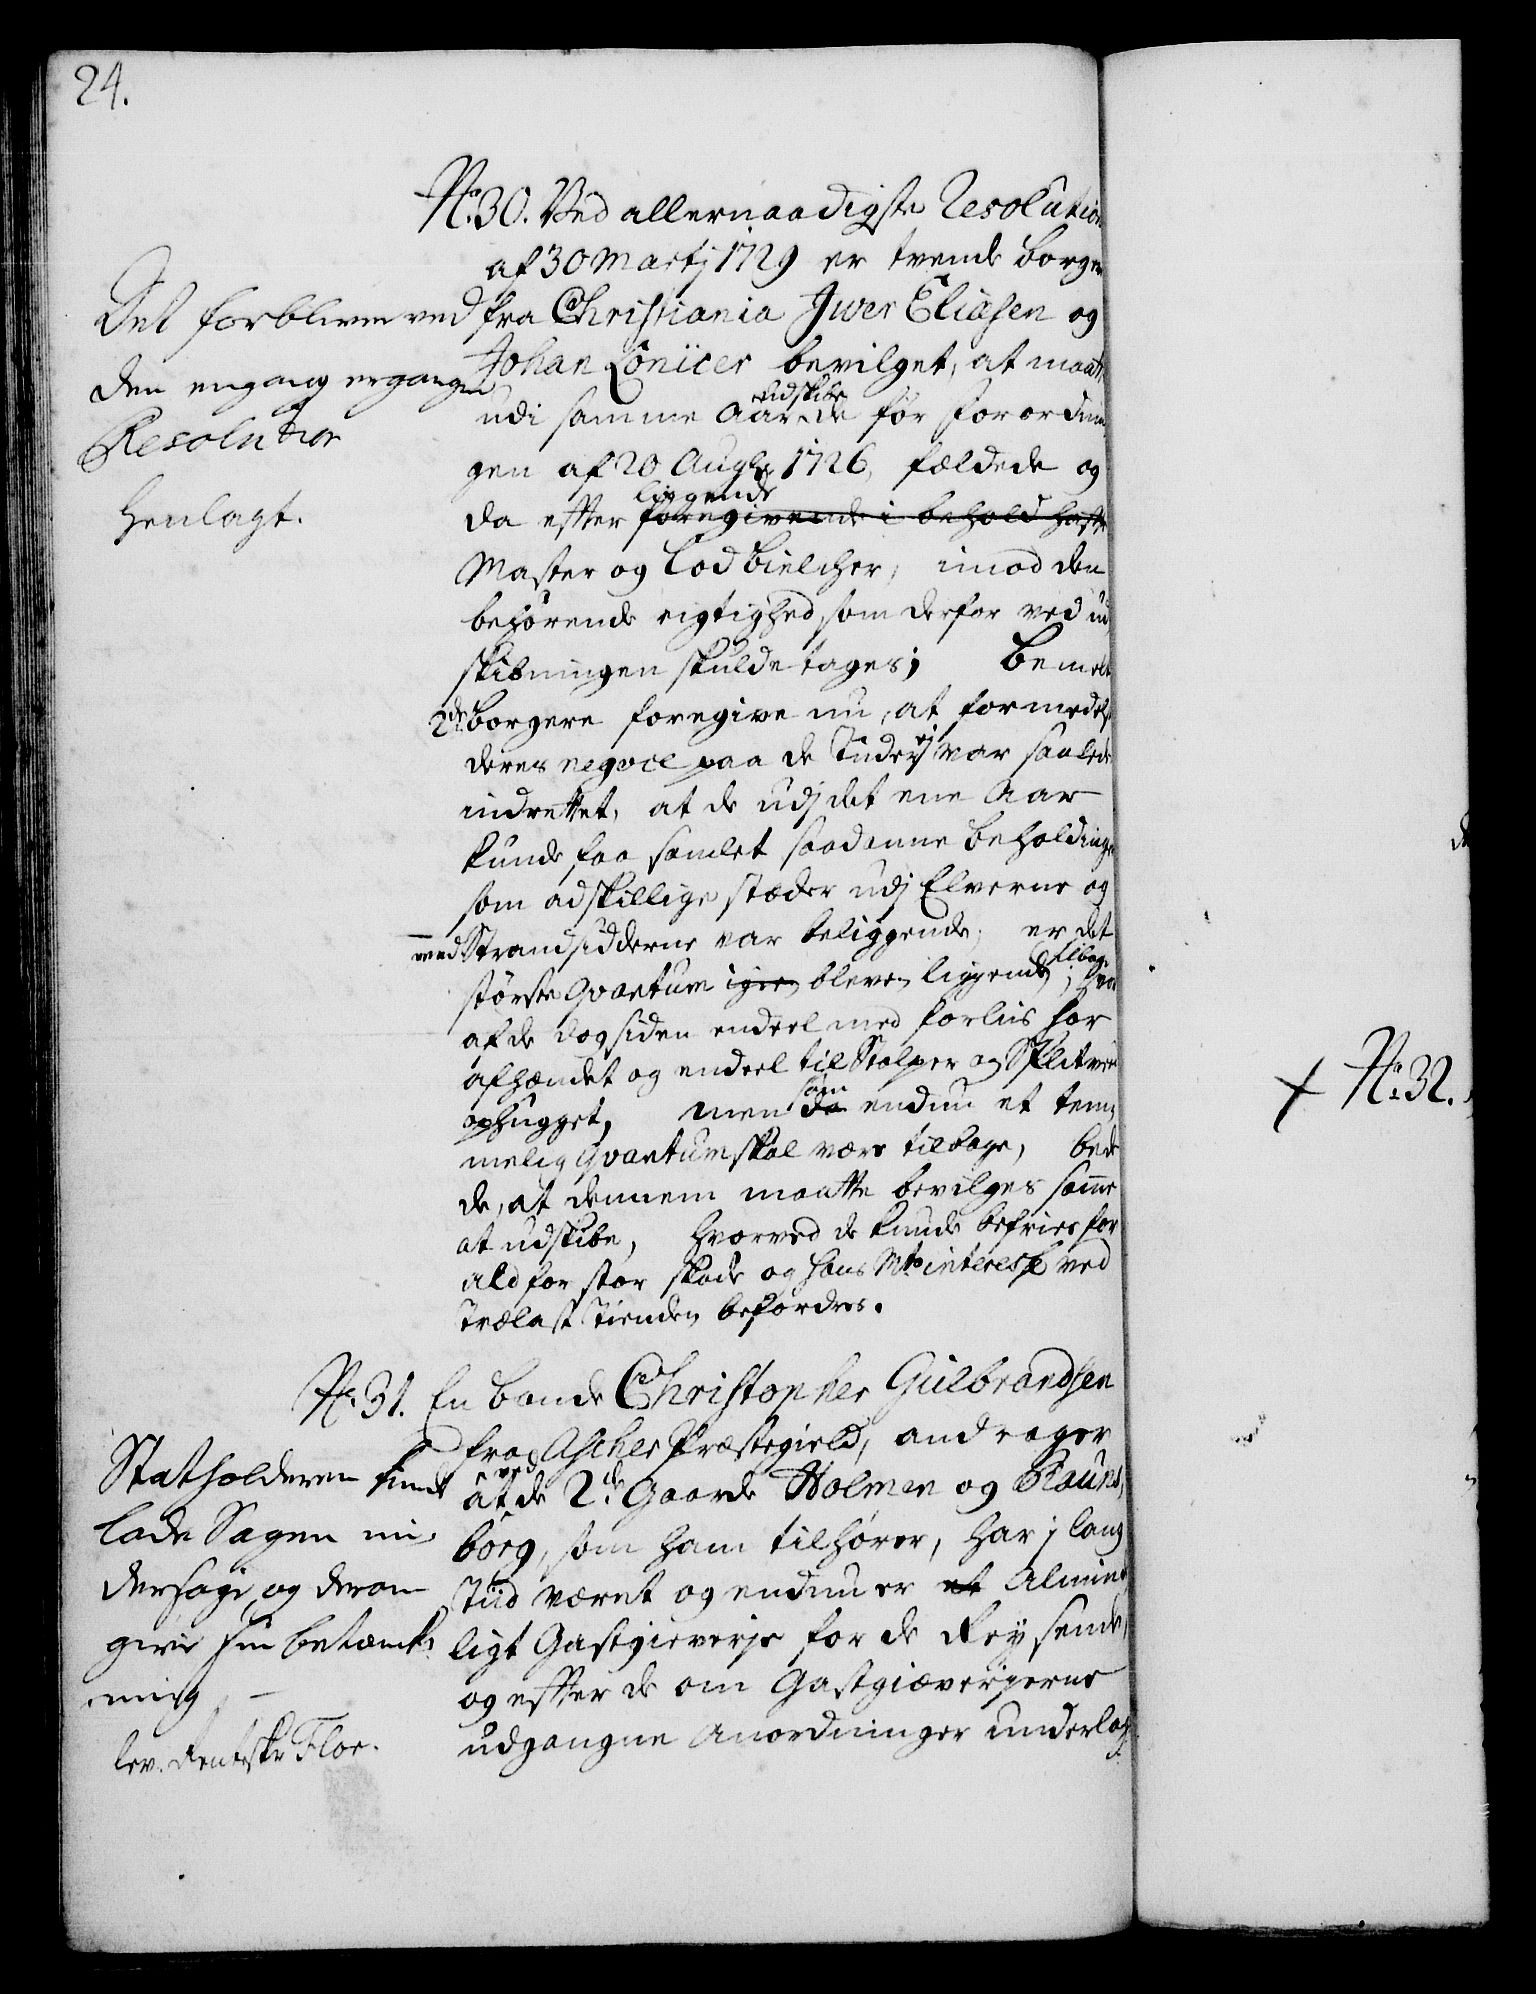 24.
No. 30. Ved allernaadigste Resolution
af 30 Martj 1729 er tvende borger
fra Christiania Jver Eliasen og
Johan Lönicer bevilget, at maatte
udskibe
udi samme Aar de før Forordnin
gen af 20 Aug. 1726, fældede og
liggende
da effter foregivende i behold hafte
Master og Lod bielcher, imod den
behörende rigtighed som derfor ved ud
skibningen skulde tages; Bemelte
2de borgere foregive nu, at formedelst
deres negoce paa de Tider ej var saaledes
indrettet, at de udj det ene Aar
kunde faa samlet saadanne beholdinger
som adskillige stæder udj Elverne og
ved Strandsidderne var beliggende, er det
tilbage
störste Qvantum igien bleven liggende; hvor
af de dog siden endeel med forliis har
afhændet og endeel til Stolper og Splitved
ophugget, men da endnu et tem
som
melig Qvantum skal være tilbage, bede
de, at dennem maatte bevilges samme
at udskibe, hvorved de kunde befries for
ald for stor skade og hans Mts interesse ved
Trælast Tienden befordres.
Det forbliver ved
den engang ergangne
Resolution
Henlagt.
No. 31. En bonde Christopher Gulbrandsen
fra Ascher Præstegield, andrager
ved
at de 2de Gaarde Holmen og Rauns,
borg, som ham tilhörer, har j lang
Tiid været og endnu er et Almint
ligt Gastgieverje for de Reysende,
og effter de om Gastgiæverjerne
udgangne Anordninger underlag
Statholderen kunde
lade Sagen un
dersöge og derom
give sin betænk
ning. –
lev. Rentskr Floe.
+ No. 32.